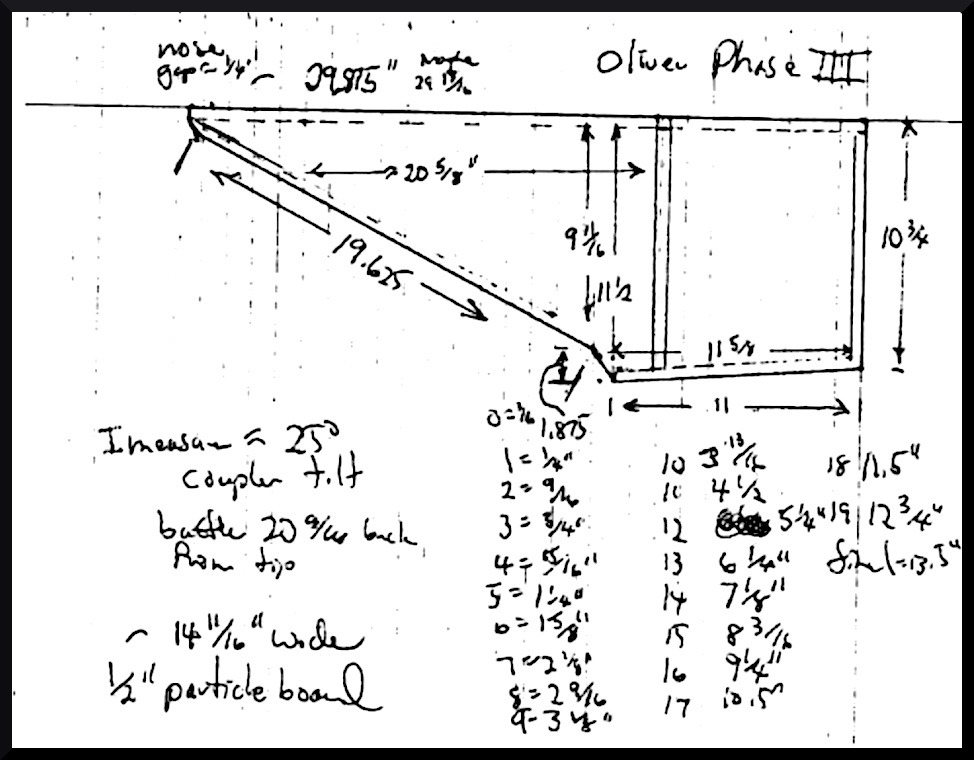 nose
gap ≈ 1/4"
~ 29.875"
maybe
29 13/16
Oliver Phase III
20 5/8"
19.625
9 11/16
11 1/2
10 3/4
11 5/8
11
1.875
I measure ≈ 25°
coupler tilt
baffle 20 9/16 back
from tip
~ 14 11/16" wide
1/2" particle board
0 = 3/16
1 = 1/4"
2 = 9/16
3 = 3/4"
4 = 15/16"
5 = 1 1/4"
6 = 1 5/8"
7 = 2 1/8"
8 = 2 9/16
9 = 3 1/8"
10 3 13/16
11 4 1/2
12 5 1/4"
13 6 1/4"
14 7 1/8"
15 8 3/16
16 9 1/4"
17 10.5"
18 11.5"
19 12 3/4"
final = 13.5"